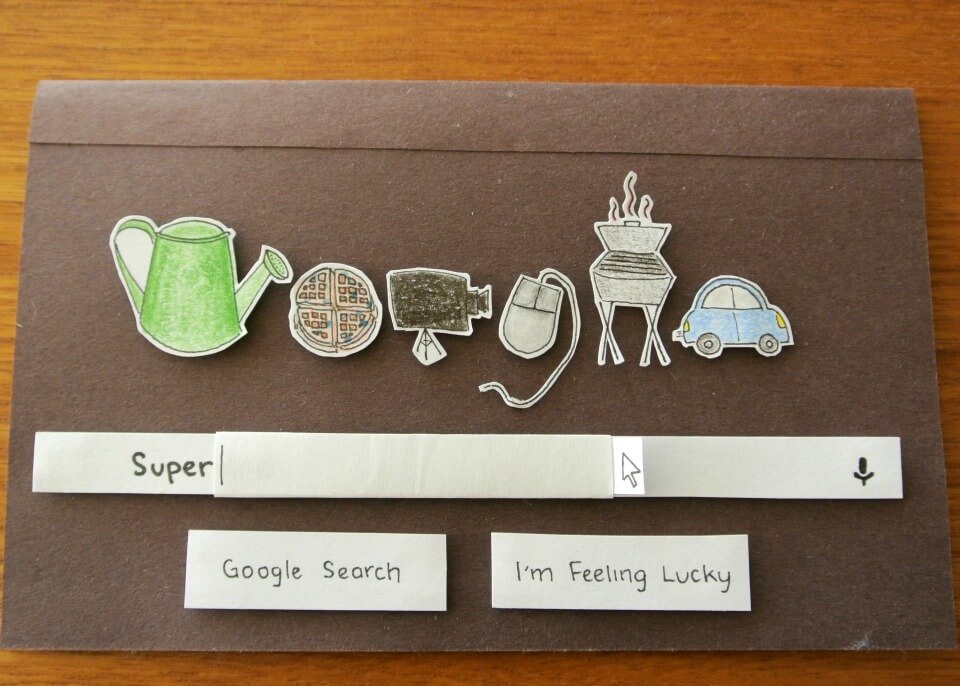 Super
Google Search
I'm Feeling Lucky